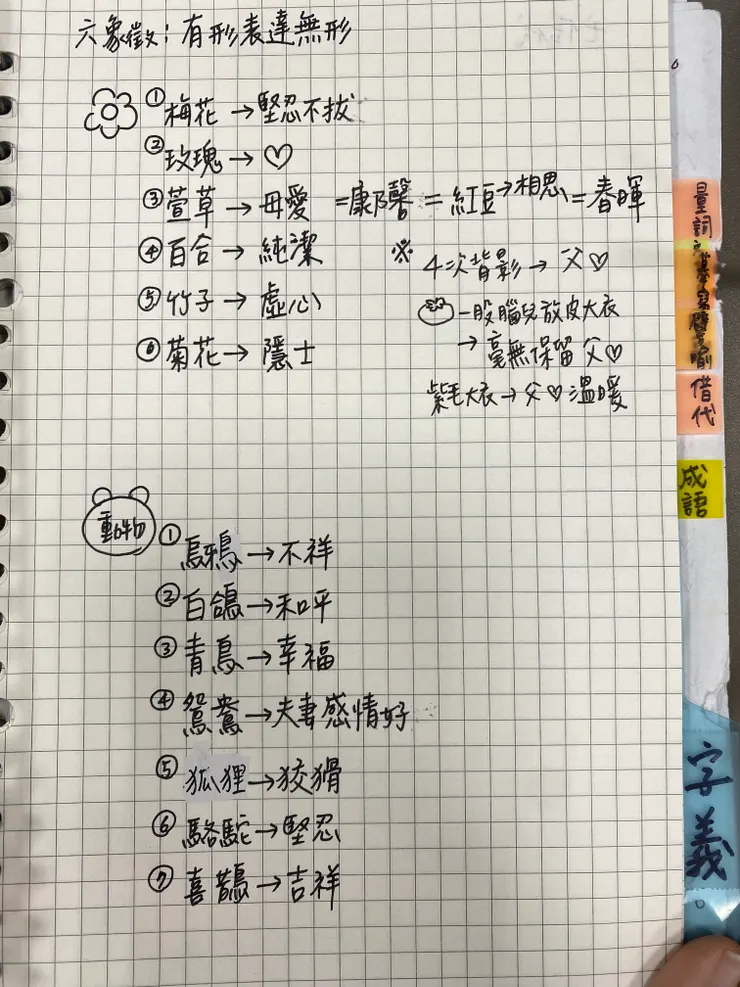 六象徵:有形表達無形
①梅花→堅忍不拔
②玫瑰→♡
③萱草→母愛 =康乃馨=紅豆→相思=春暉
④百合→純潔
※4次背影→父♡
⑤竹子→虛心
一股腦兒放皮大衣
→毫無保留父♡
⑥菊花→隱士
紫毛大衣→父♡溫暖
動物
①烏鴉→不祥
②白鴿→和平
③青鳥→幸福
④鴛鴦→夫妻感情好
⑤狐狸→狡猾
⑥駱駝→堅忍
⑦喜鵲→吉祥
量詞
借代
成語
字義